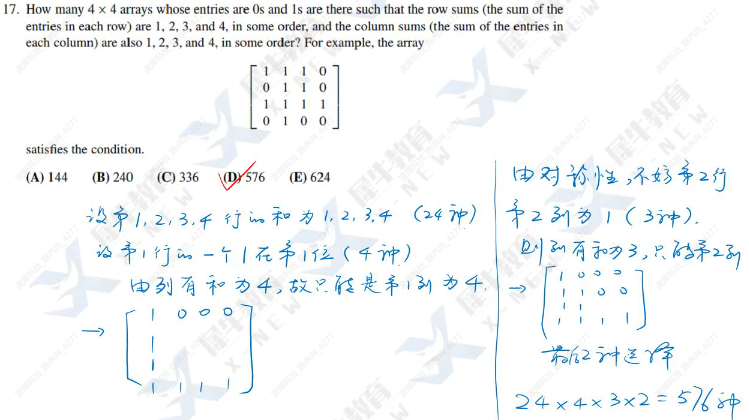 17. How many 4 × 4 arrays whose entries are 0s and 1s are there such that the row sums (the sum of the
entries in each row) are 1, 2, 3, and 4, in some order, and the column sums (the sum of the entries in
each column) are also 1, 2, 3, and 4, in some order? For example, the array
1 1 1 0
0 1 1 0
1 1 1 1
0 1 0 0
satisfies the condition.
(A) 144 (B) 240 (C) 336 (D) 576 (E) 624
设第1,2,3,4行的和为1,2,3,4 (24种)
设第1行的一个1在第1位(4种)
由列有和为4,故只能是第1列为4.
→
1 0 0 0
1
1
1 1 1 1
由对称性,不妨第2行
第2列为1(3种).
则列有和为3,只能第2列
→
1 0 0 0
1 1 0 0
1 1
1 1 1 1
最后2种选择
24×4×3×2=576种
犀牛教育
X NEW